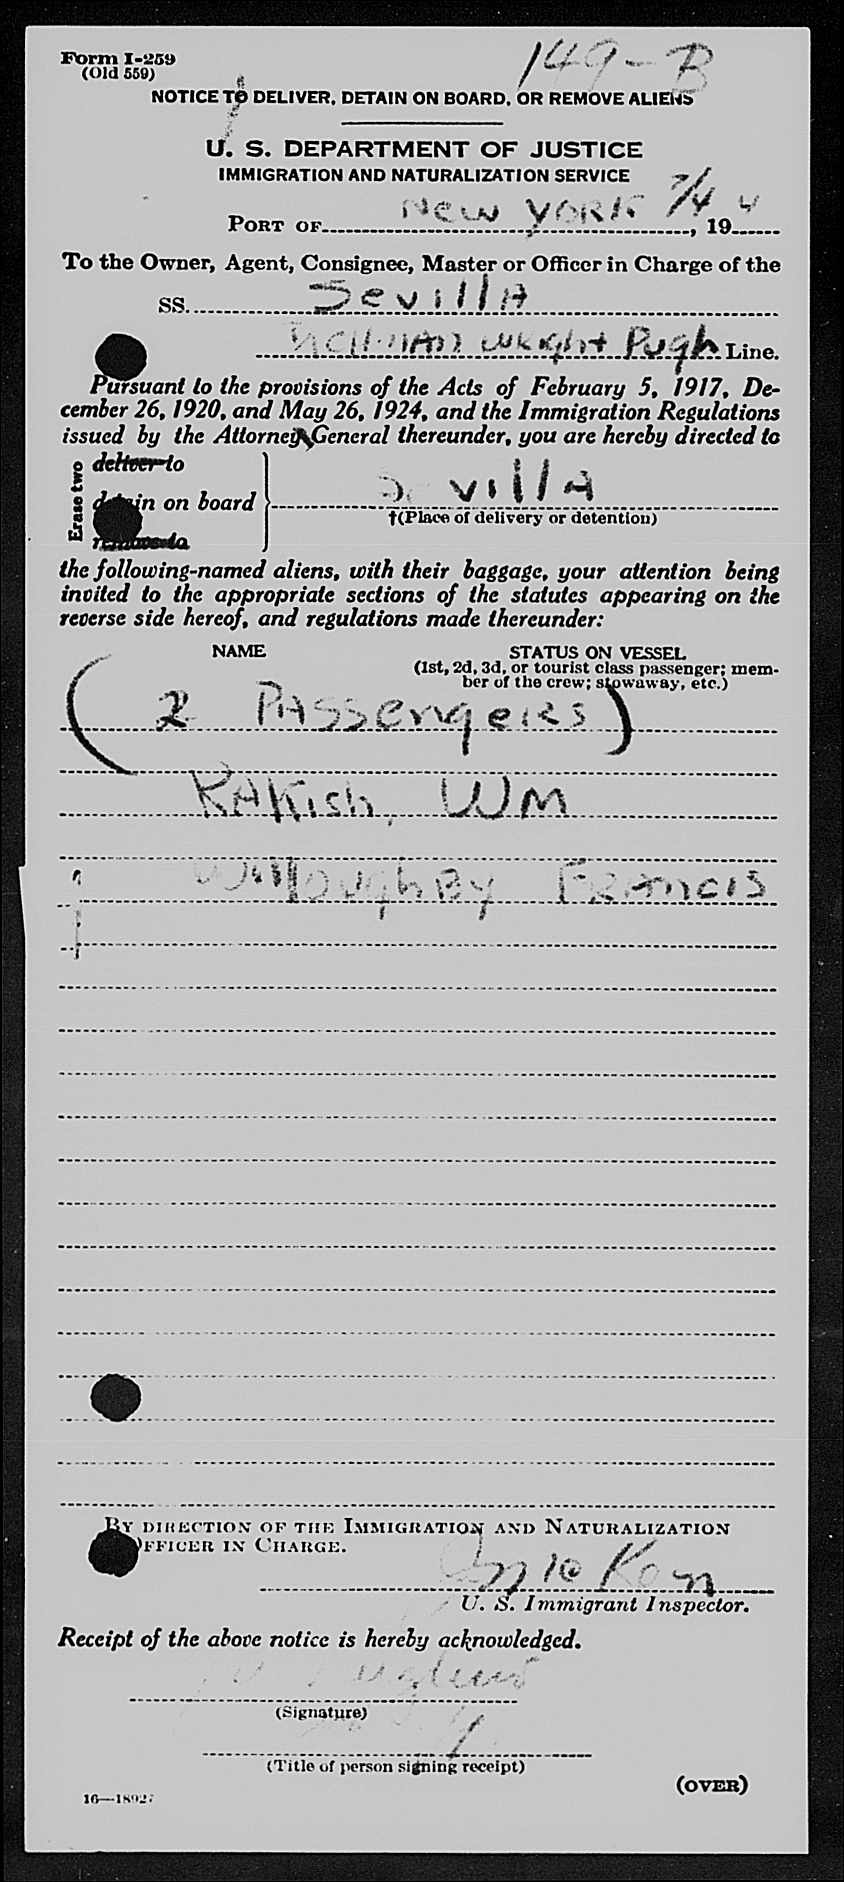 Form I-259
(Old 559)
149-B
NOTICE TO DELIVER, DETAIN ON BOARD, OR REMOVE ALIENS
U. S. DEPARTMENT OF JUSTICE
IMMIGRATION AND NATURALIZATION SERVICE
PORT OF New YORK 7/4, 19 4
To the Owner, Agent, Consignee, Master or Officer in Charge of the
SS. SevillA
Wright Pugh Line.
Pursuant to the provisions of the Acts of February 5, 1917, De-
cember 26, 1920, and May 26, 1924, and the Immigration Regulations
issued by the Attorney General thereunder, you are hereby directed to
Erase two
deliver to
detain on board SevillA
†(Place of delivery or detention)
remove to
the following-named aliens, with their baggage, your attention being
invited to the appropriate sections of the statutes appearing on the
reverse side hereof, and regulations made thereunder:
NAME STATUS ON VESSEL
(1st, 2d, 3d, or tourist class passenger; mem-
ber of the crew; stowaway, etc.)
(2 PAssengeRs)
RAKish, WM
WilloughBy FRancis
BY DIRECTION OF THE IMMIGRATION AND NATURALIZATION
OFFICER IN CHARGE.
U. S. Immigrant Inspector.
Receipt of the above notice is hereby acknowledged.
(Signature)
(Title of person signing receipt)
(OVER)
16—18927